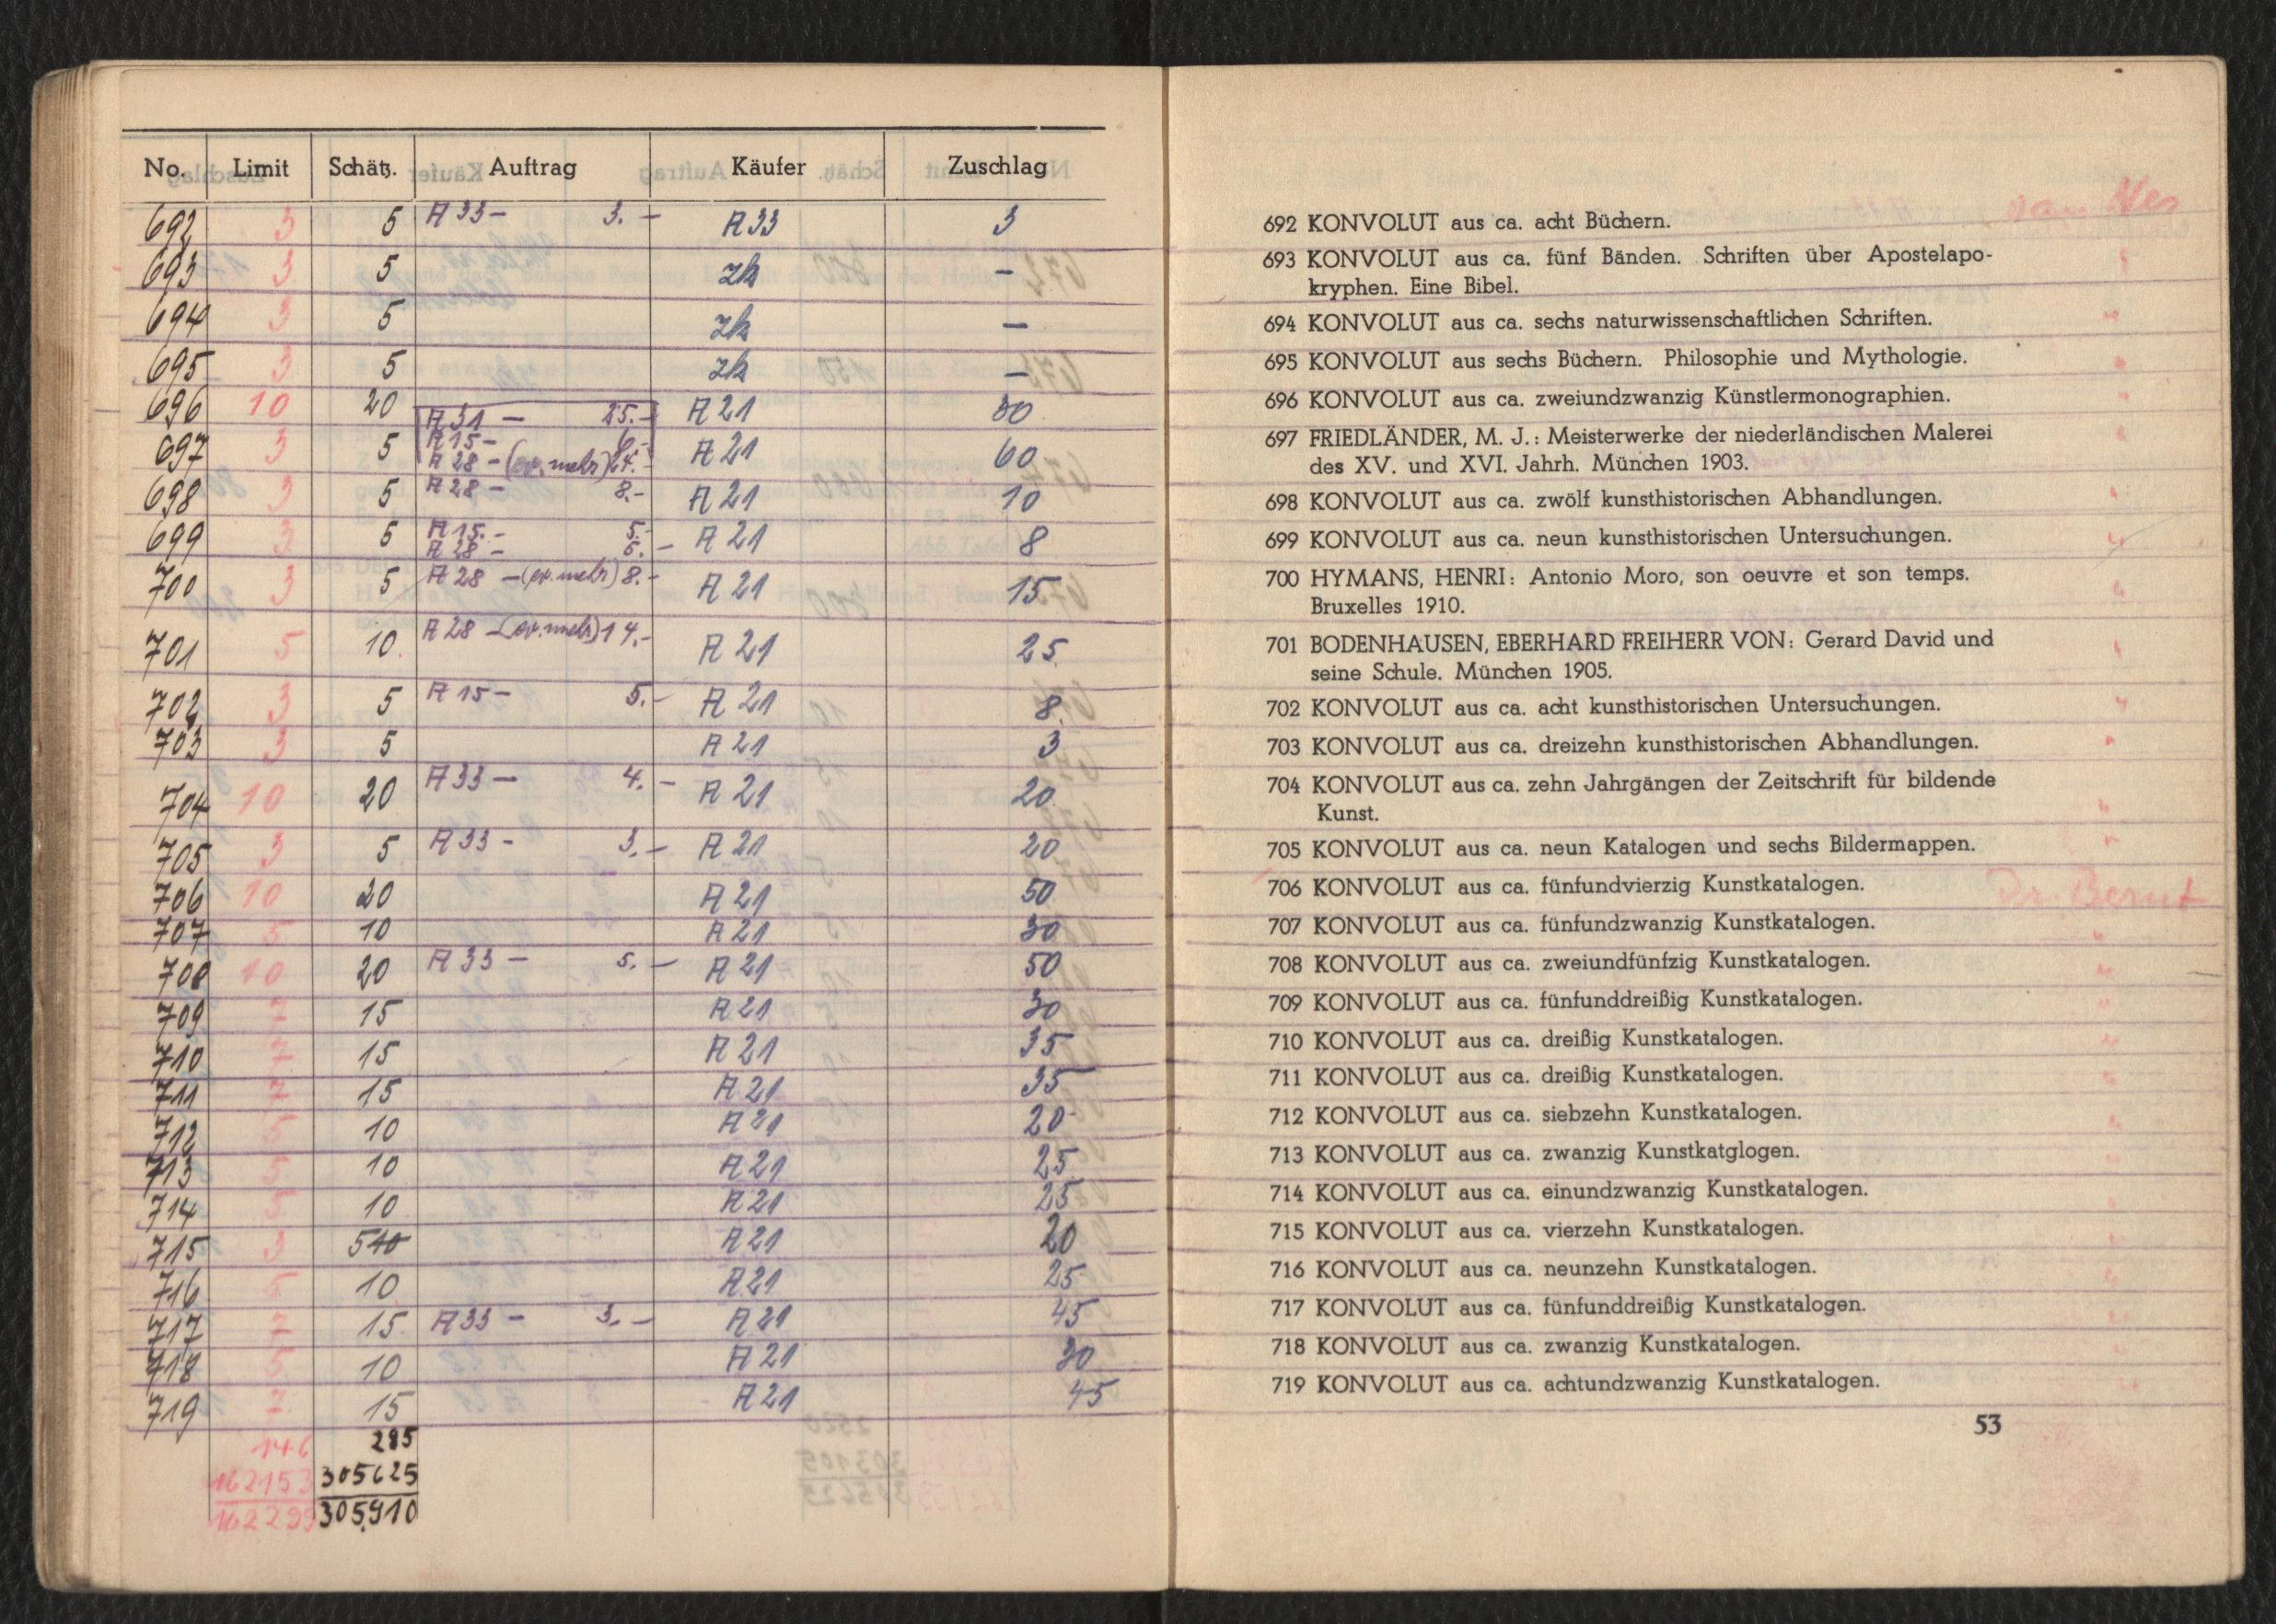 No. Limit Schätz. Auftrag Käufer Zuschlag
692 3 5 A 33 – 3. – A 33 3
693 3 5 zk –
694 3 5 zk –
695 3 5 zk –
696 10 20 A 31 – 25. – A 21 30
697 3 5 A 15 – 6. – A 21 60
A 28 – (ev. mehr) 24. –
698 3 5 A 28 – 8. – A 21 10
699 3 5 A 15. – 5. – A 21 8
A 28 – 5. –
700 3 5 A 28 – (ev. mehr) 8. – A 21 15
701 5 10 A 28 – (ev. mehr) 14. – A 21 25
702 3 5 A 15 – 5. – A 21 8
703 3 5 A 21 3
704 10 20 A 33 – 4. – A 21 20
705 3 5 A 33 – 3. – A 21 20
706 10 20 A 21 50
707 5 10 A 21 30
708 10 20 A 33 – 5. – A 21 50
709 7 15 A 21 30
710 7 15 A 21 35
711 7 15 A 21 35
712 5 10 A 21 20
713 5 10 A 21 25
714 5 10 A 21 25
715 3 5 10 A 21 20
716 5 10 A 21 25
717 7 15 A 33 – 3. – A 21 45
718 5 10 A 21 30
719 7 15 A 21 45
146 285
162153 305625
162299 305,910
692 KONVOLUT aus ca. acht Büchern. van Nes
693 KONVOLUT aus ca. fünf Bänden. Schriften über Apostelapo-
kryphen. Eine Bibel. "
694 KONVOLUT aus ca. sechs naturwissenschaftlichen Schriften. "
695 KONVOLUT aus sechs Büchern. Philosophie und Mythologie. "
696 KONVOLUT aus ca. zweiundzwanzig Künstlermonographien. "
697 FRIEDLÄNDER, M. J.: Meisterwerke der niederländischen Malerei "
des XV. und XVI. Jahrh. München 1903.
698 KONVOLUT aus ca. zwölf kunsthistorischen Abhandlungen. "
699 KONVOLUT aus ca. neun kunsthistorischen Untersuchungen. "
700 HYMANS, HENRI: Antonio Moro, son oeuvre et son temps.
Bruxelles 1910. "
701 BODENHAUSEN, EBERHARD FREIHERR VON: Gerard David und "
seine Schule. München 1905.
702 KONVOLUT aus ca. acht kunsthistorischen Untersuchungen. "
703 KONVOLUT aus ca. dreizehn kunsthistorischen Abhandlungen. "
704 KONVOLUT aus ca. zehn Jahrgängen der Zeitschrift für bildende
Kunst. "
705 KONVOLUT aus ca. neun Katalogen und sechs Bildermappen. "
706 KONVOLUT aus ca. fünfundvierzig Kunstkatalogen. Dr. Bernt
707 KONVOLUT aus ca. fünfundzwanzig Kunstkatalogen. "
708 KONVOLUT aus ca. zweiundfünfzig Kunstkatalogen. "
709 KONVOLUT aus ca. fünfunddreißig Kunstkatalogen. "
710 KONVOLUT aus ca. dreißig Kunstkatalogen. "
711 KONVOLUT aus ca. dreißig Kunstkatalogen. "
712 KONVOLUT aus ca. siebzehn Kunstkatalogen. "
713 KONVOLUT aus ca. zwanzig Kunstkatglogen. "
714 KONVOLUT aus ca. einundzwanzig Kunstkatalogen. "
715 KONVOLUT aus ca. vierzehn Kunstkatalogen. "
716 KONVOLUT aus ca. neunzehn Kunstkatalogen. "
717 KONVOLUT aus ca. fünfunddreißig Kunstkatalogen. "
718 KONVOLUT aus ca. zwanzig Kunstkatalogen. "
719 KONVOLUT aus ca. achtundzwanzig Kunstkatalogen. "
53